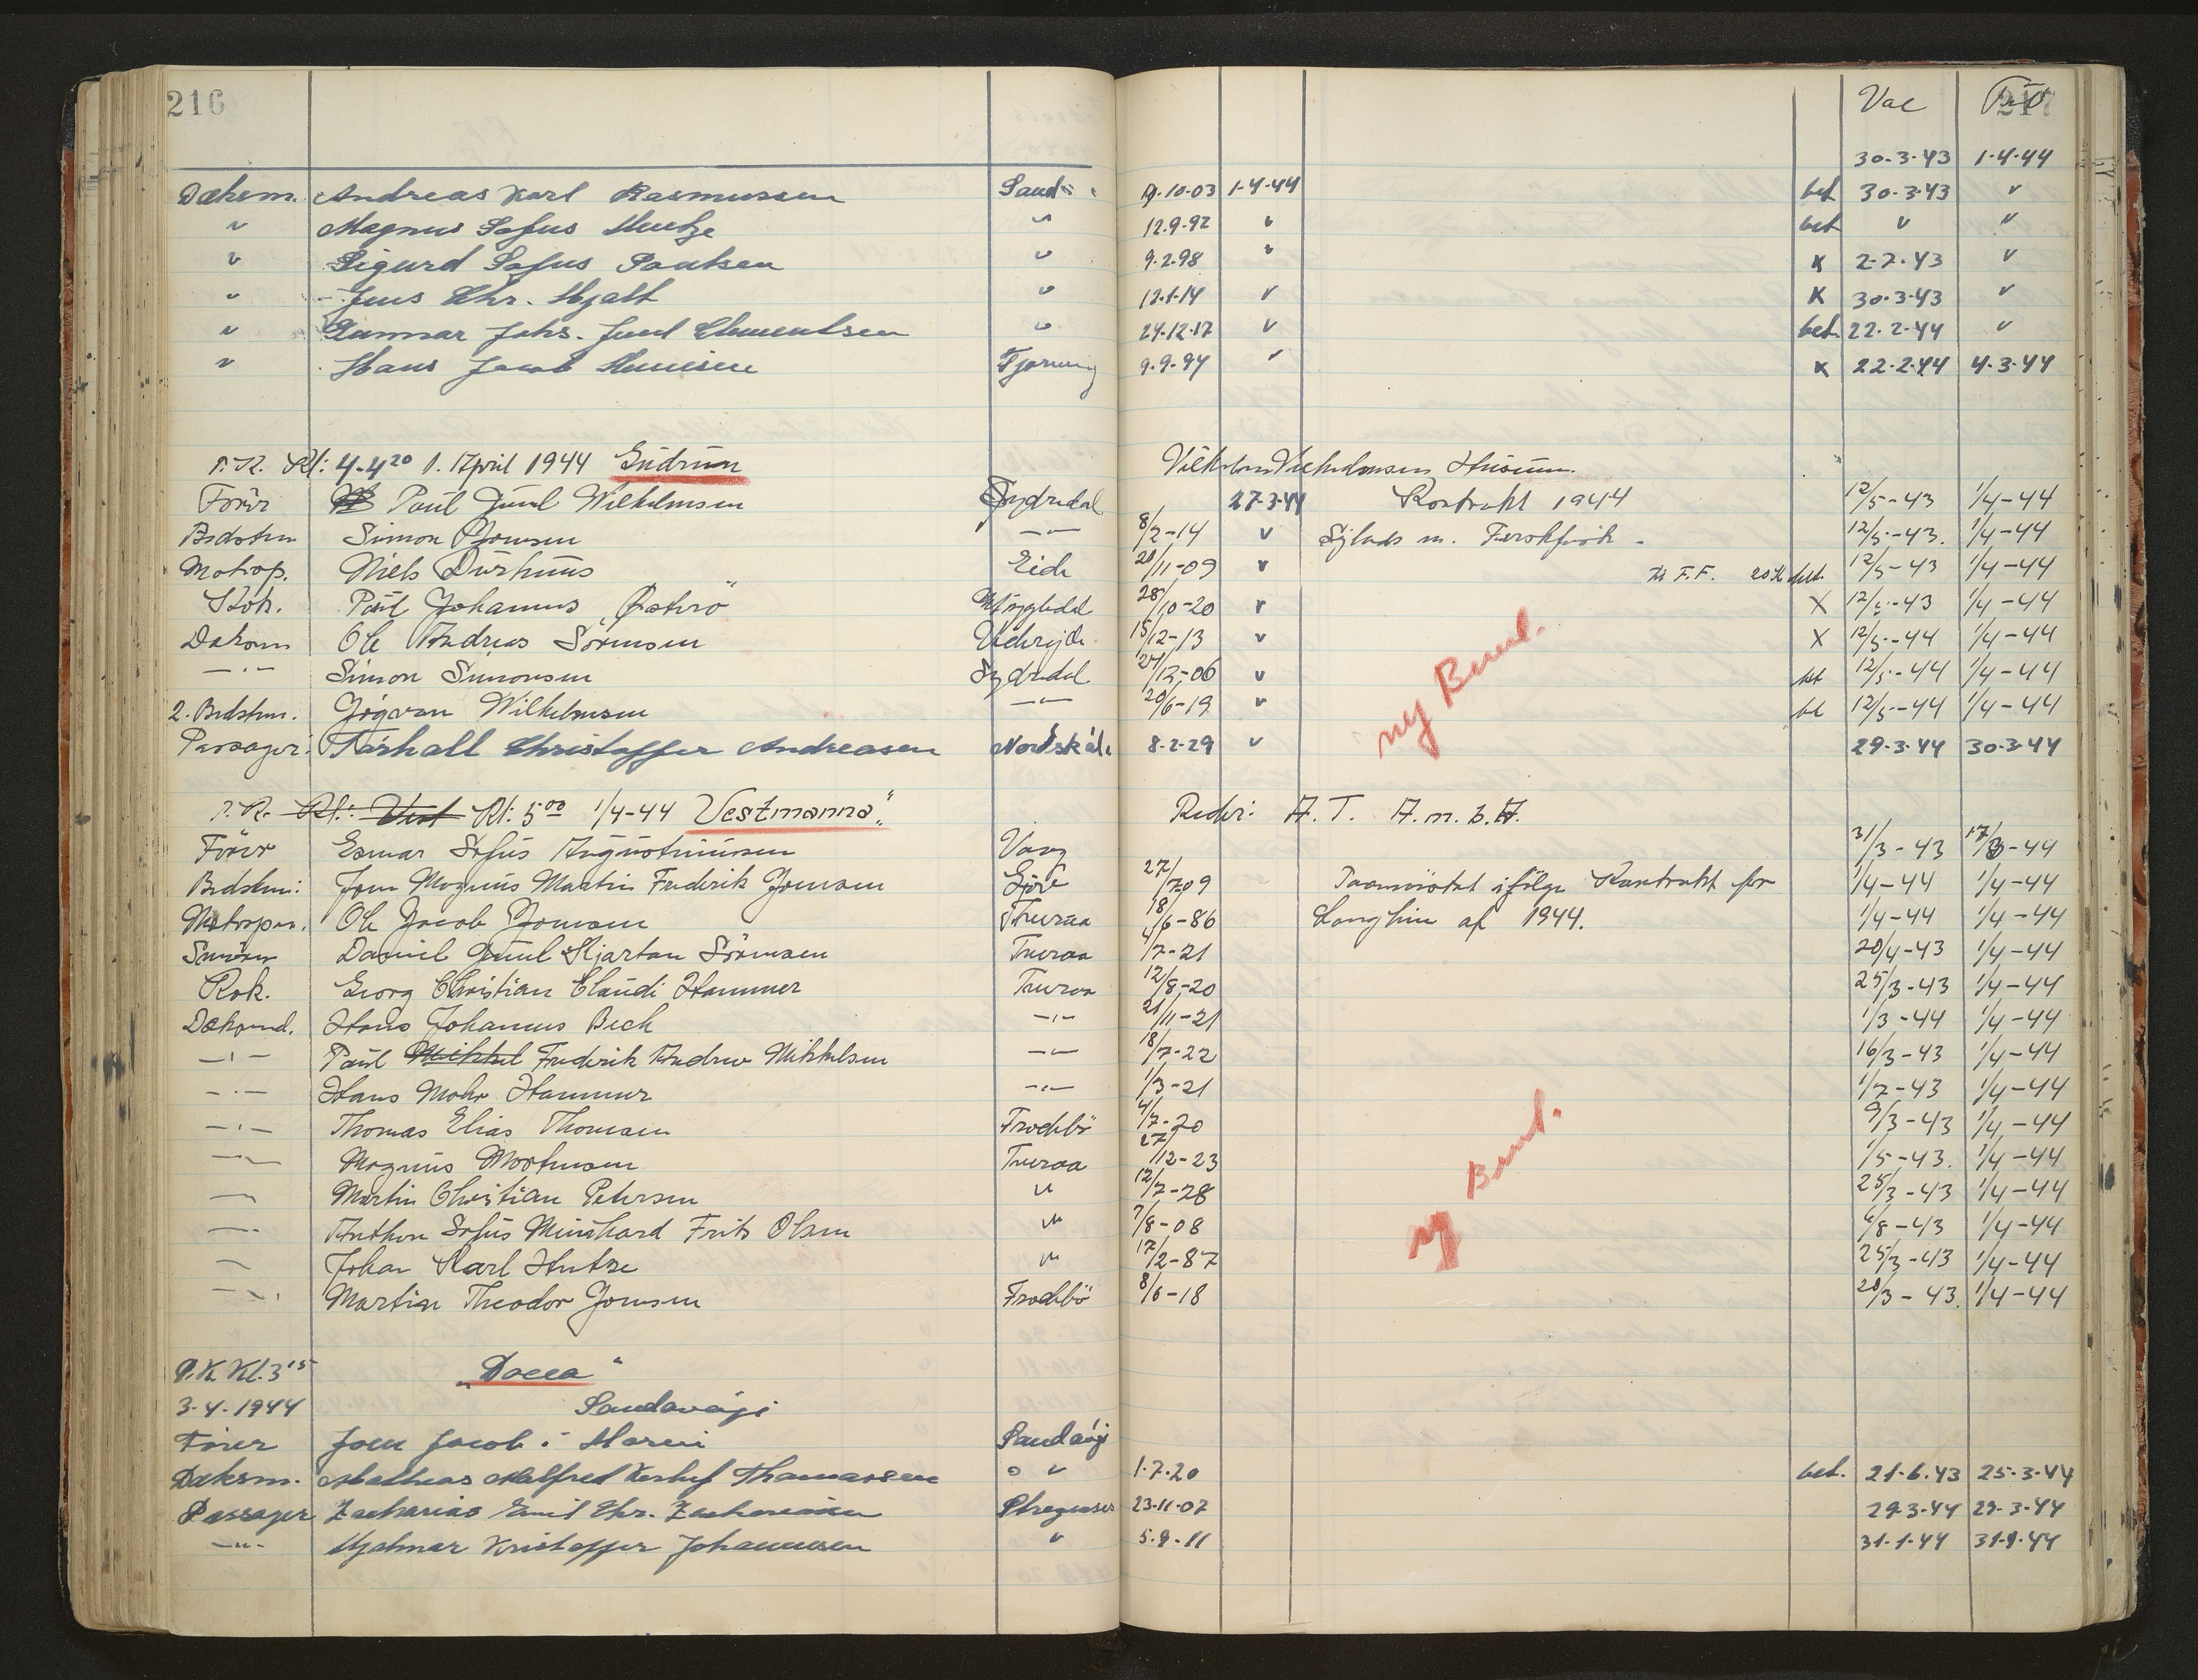 216
Vac 217
30-3-43 1-4-44
Dæksm. Andreas Karl Rasmussen Sand 9-10-03 1-4-44 bet 30-3-43 v
v Magnus Sofus 12.9-92 v bet v v
v Sigurd Sofus Paulsen v 9-2-98 v x 2-7-43 v
v Jens Chr. Hjalt v 12-1-14 v x 30-3-43 v
v Gunnar Johs. Juul Clementsen v 24-12-17 v bet. 22-2-44 v
v Hans Jacob 9-9-94 x 22-2-44 4-3-44
P.K. Kl: 4-4²⁰ 1. April 1944 Gudrun Vilhelm Vilhelmsen Húsum.
Förer Paul Juul Wilhelmsen Sydredal 27-3-44 Kontrakt 1944 12/5-43 1/4-44
Bedstem Simon Joensen -"- 8/2-14 v m. Ferskfisk - 12/5-43. 1/4-44
Motrop. Niels Durhuus Eide 20/11-09 v F.F. 12/5-43 1/4-44
Kok. Paul Johannes Østerö 28/10-20 v X 12/5-43 1/4-44
Daksm Ole Andreas Sörensen 15/12-13 v X 12/5-44 1/4-44
-"- Simon Simonsen Sydredal 27/12-06 v bet 12/5-44 1/4-44
2. Bedstem. Jógvan Wilhelmsen -"- 20/6-19 v 12/5-44 1/4-44
Passager Tórhall Christoffer Andreasen Nordskále 8-2-29 v 29-3-44 30-3-44
ny Bemd.
P.K. Kl: Vest Kl: 5⁰⁰ 1/4-44 Vestmanna" Reder: A. T. A. m. b. A.
Förer Esmar Sofus Augustinussen Vaag 31/3-43 17/3-44
Bedstem: Joen Magnus Martin Frederik Joensen 27/7 09 ifölge Kontrakt for 1/4-44 1/4-44
Motorpas. Ole Jacob Joensen Tveraa 18/6-86 af 1944. 1/4-44 1/4-44
Daniel Juul Kjartan Sörensen Tveraa 4/7-21 20/4-43 1/4-44
Kok. Georg Christian Claudi Hammer Tveraa 12/8-20 25/3-43 1/4-44
Dæksmd. Hans Johannes Bech -"- 21/11-21 1/3-44 1/4-44
-"- Paul Mikkel Frederik Andrew Mikkelsen -"- 18/7-22 16/3-43 1/4-44
-"- Hans Mohr Hammer -"- 1/3-21 1/7-43 1/4-44
-"- Thomas Elias Thomsen Frodebö 4/7-20 9/3-43 1/4-44
-"- Magnus Mortensen Tveraa 27/12-23 1/5-43. 1/4-44
-"- Martin Christian Petersen " 12/7-28 25/3-43 1/4-44
-"- Anthon Sofus Meinhard Frits Olsen " 7/8-08 6/8-43 1/4-44
-"- Johan Karl Hentze " 17/2-87 25/3-43 1/4-44
-"- Martin Theodor Joensen Frodebö 8/6-18 20/3-43. 1/4-44
ny Bemd.
P.K Kl.3¹⁵ "Docca"
3-4-1944 Sandavági
Förer Joen Jacob i Sandvági
Dæksm. Mathias Thomassen v 1-7-20 bet. 21-6-43 25-3-44
Passager Zacharias Emil Chr. Zachariasen 23-11-07 29-3-44 29-3-44
-"- Hjalmar Kristoffer Johannesen v 5-9-11 31-1-44 31-1-44